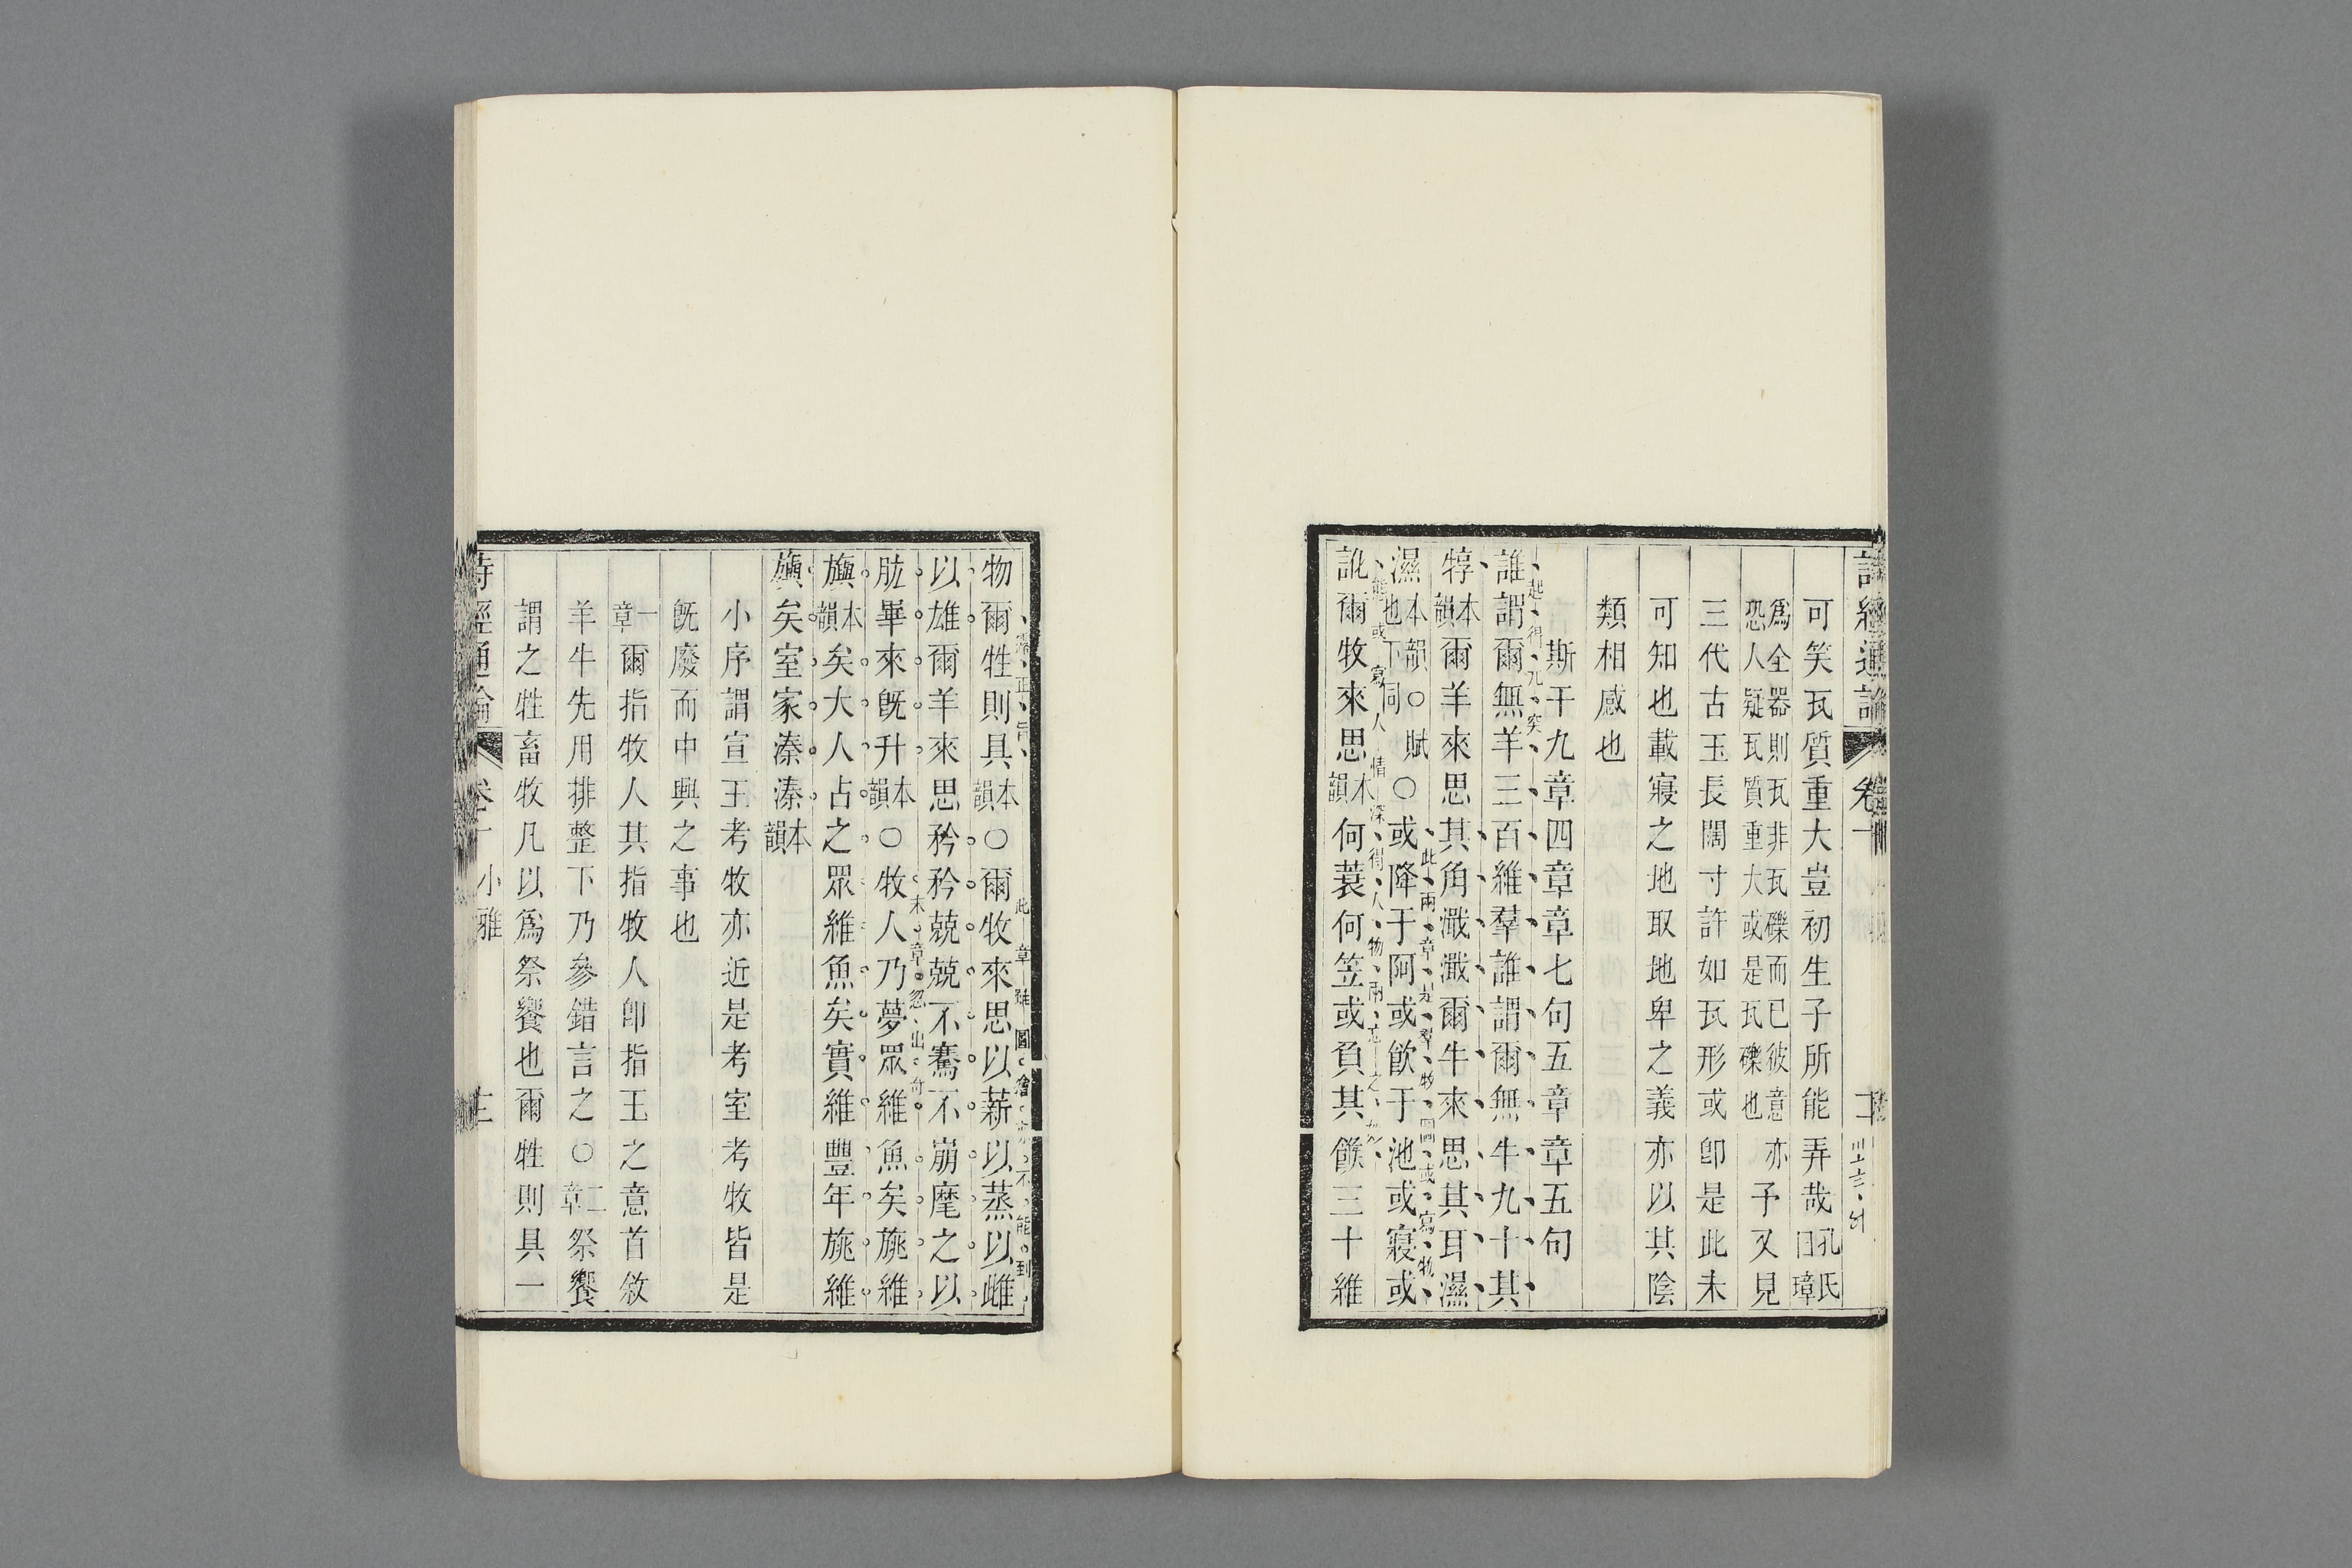 可笑瓦質重大豈初生子所能弄哉孔氏曰璋
爲全器則瓦非瓦礫而已彼意
恐人疑瓦質重大或是瓦礫也
亦予又見
三代古玉長闊寸許如瓦形或卽是此未
可知也載寢之地取地卑之義亦以其陰
類相感也
斯干九章四章章七句五章章五句
起得兀突
誰謂爾無羊三百維羣誰謂爾無牛九十其
犉本韻爾羊來思其角濈濈爾牛來思其耳濕
此兩章是羣物圖或寫物
濕本韻○賦也下同○或降于阿或飲于池或寢或
態或寫人情深得人物兩忘之妙
訛爾牧來思本韻何蓑何笠或負其餱三十維
正旨
物爾牲則具本韻○爾牧來思以薪以蒸以雌
此章雖圖繪亦不能到
以雄爾羊來思矜矜兢兢不騫不崩麾之以
肱畢來旣升本韻○牧人乃夢眾維魚矣旐維
末章忽出奇
旟本韻矣大人占之眾維魚矣實維豐年旐維
旟矣室家溱溱本韻
小序謂宣王考牧亦近是考室考牧皆是
旣廢而中興之事也
一章爾指牧人其指牧人卽指王之意首敘
羊牛先用排整下乃參錯言之○二章祭饗
謂之牲畜牧凡以爲祭饗也爾牲則具一
小雅